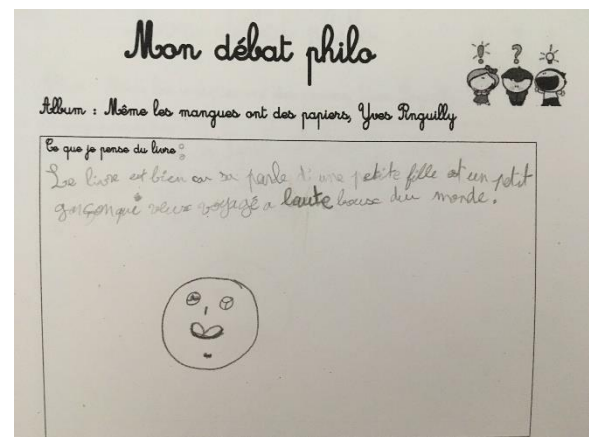 Mon débat philo
Album : Même les mangues ont des papiers, Yves Pinguilly
Ce que je pense du livre :
Le livre est bien car sa parle di une petite fille et un petit
garçon qui veux voyagé a laute bouse du monde.